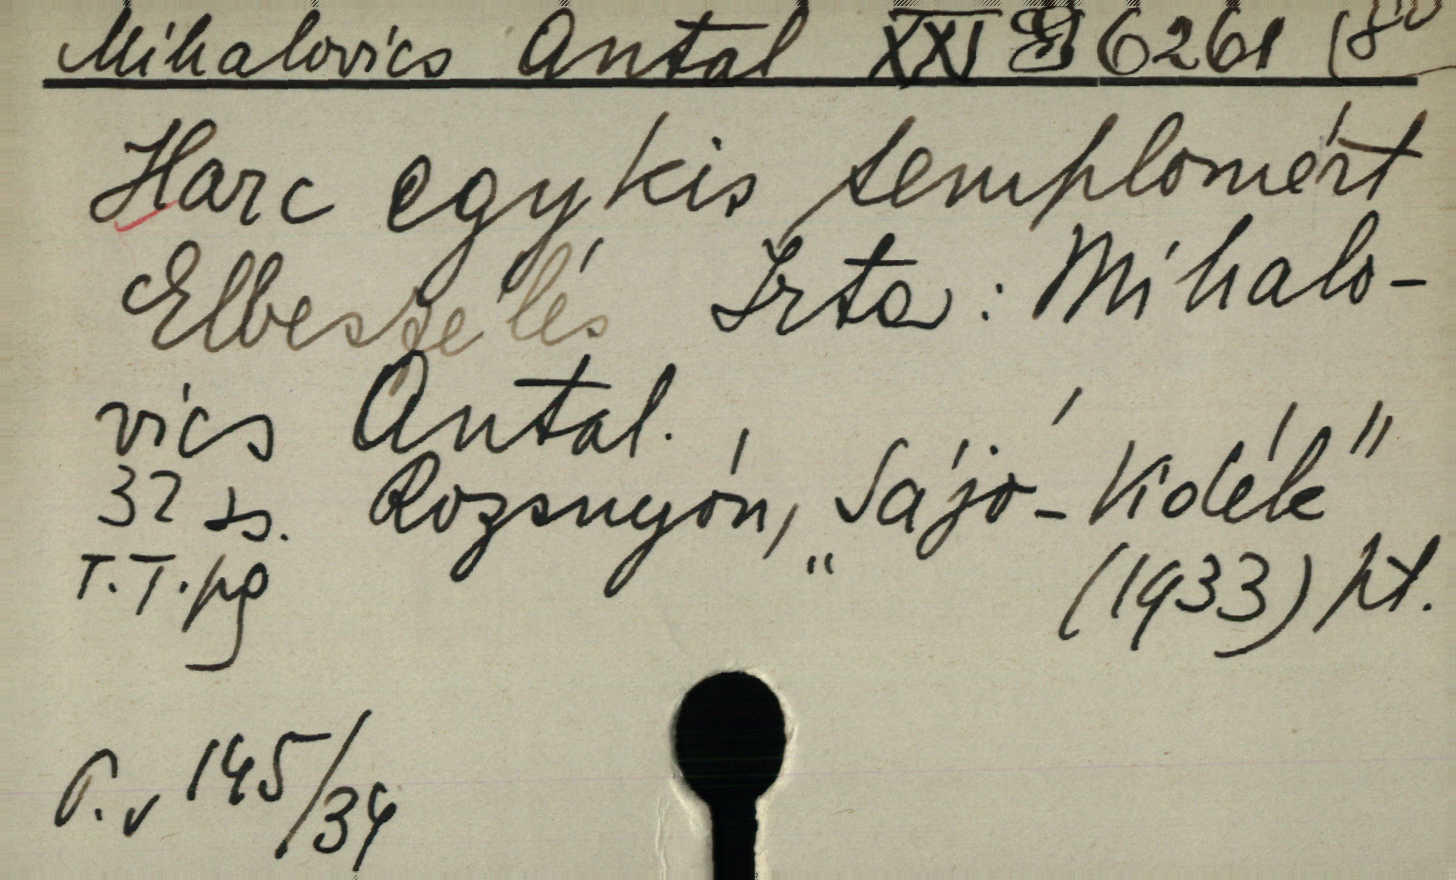 Mihalovics Antal XXI 6261
Harc egy kis templomért
Elbeszélés Irta: Mihalo-
vics Antal.
32 ss. Rozsnyón, „Sajó-Vidék"
T.T.pg (1933) pt.
145/34